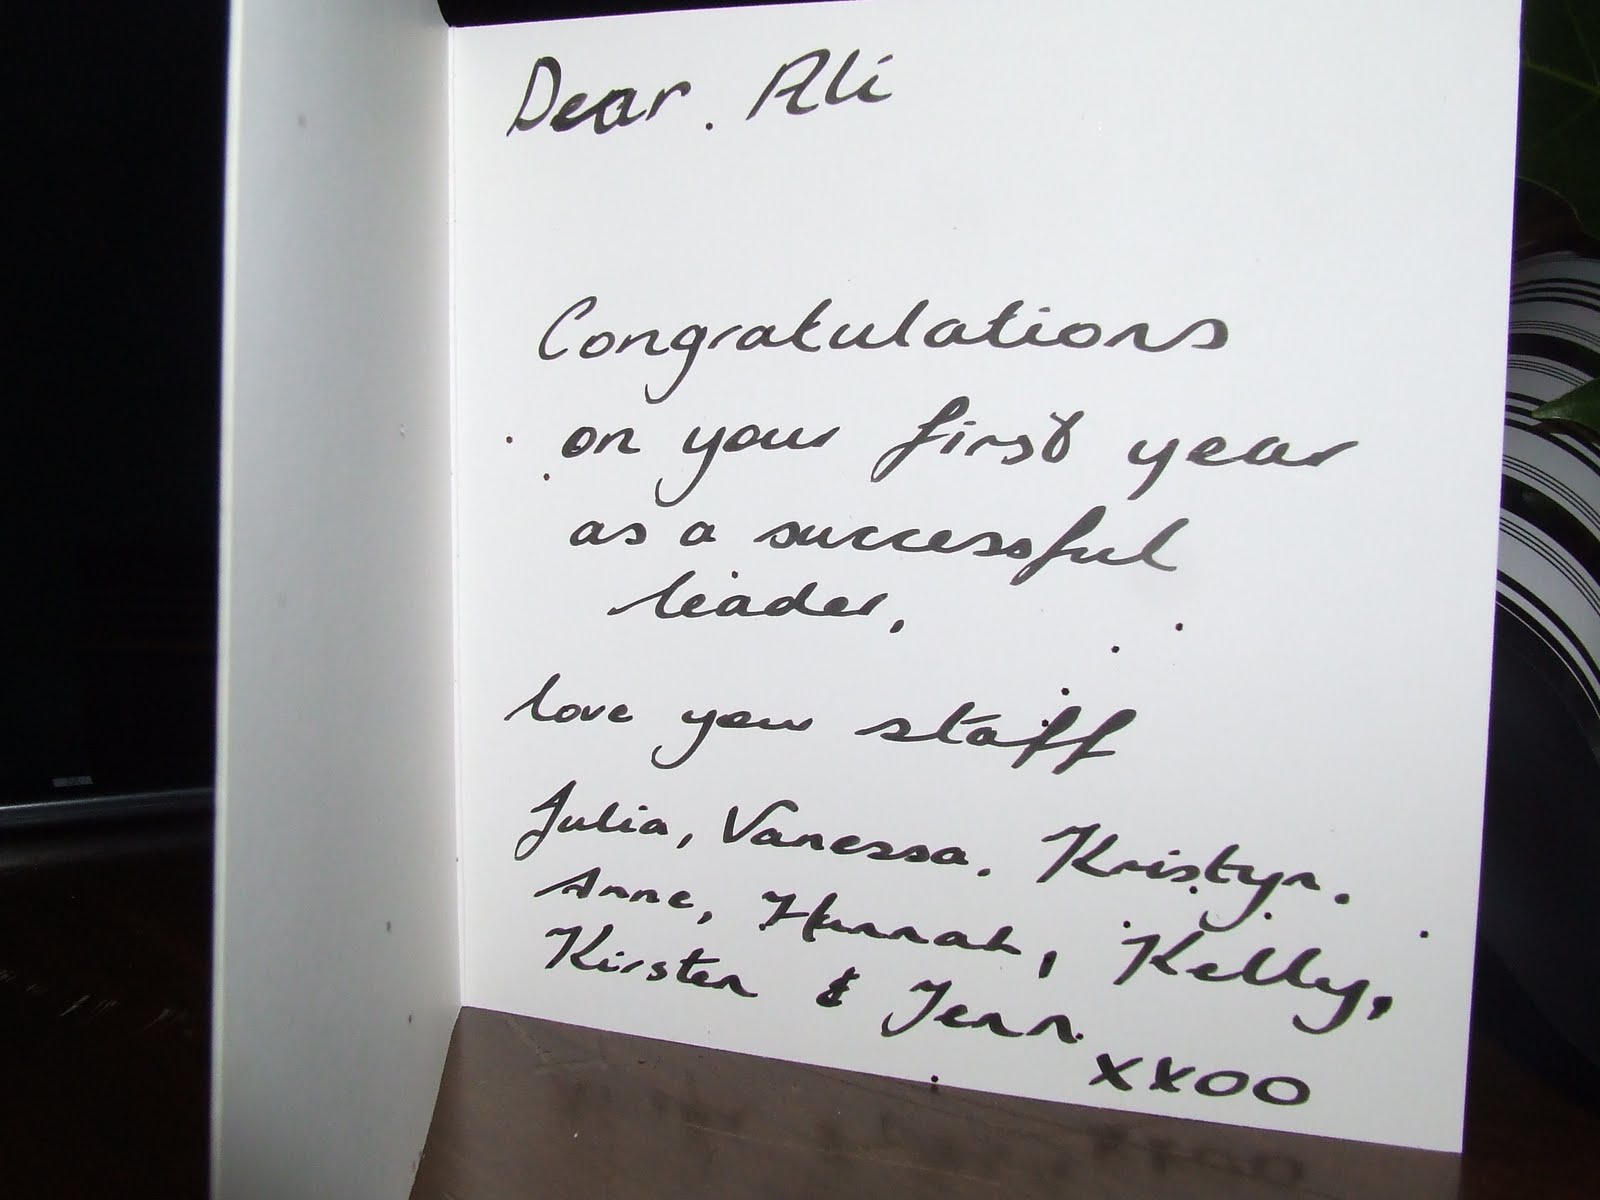 Dear. Ali
Congratulations
on your first year
as a successful
leader,
love your staff
Julia, Vanessa, Kristyn.
Anne, Hannah, Kelly,
Kirsten & Jenn.
xxoo